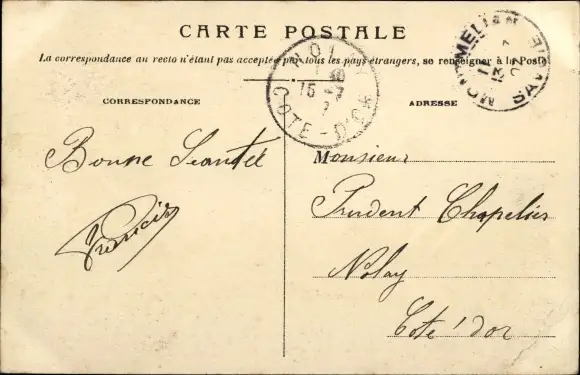 CARTE POSTALE
La correspondance au recto n'étant pas acceptée par tous les pays étrangers, se renseigner à la Poste
CORRESPONDANCE
ADRESSE
NOLAY
15 - 7
COTE-D'OR
MONTMELIAN
SAVOIE
Bonne Santée
Francis
Monsieur
Prudent Chapelier
Nolay
Cote d'or